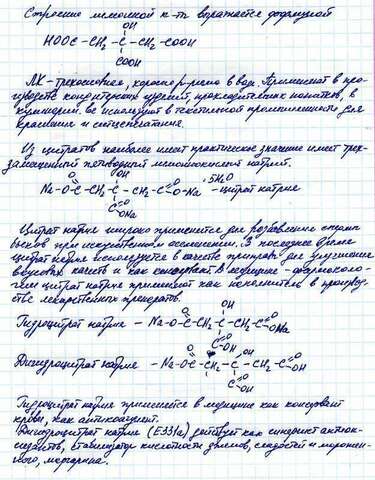 Строение лимонной к-ты выражается формулой
OH
HOOC-CH₂-C-CH₂-COOH
COOH
ЛК-трехосновная, хорошо р-римо в воде. Применяют в про-
изводстве кондитерских изделий, прохладительных напитков, в
кулинарии. Ее используют в текстильной промышленности для
крашения и ситцепечатания.
Из цитратов наиболее имеет практическое значение имеет трех-
замещенный пятиводный лимоннокислый натрий.
Na-O-C-CH₂-C-CH₂-C-O-Na · 5H₂O - цитрат натрия
Цитрат натрия широко применяется для разбавления спермы
быков при искусственном осеменении. В последнее время
цитрат натрия используется в качестве приправы для улучшения
вкусовых качеств и как консервант. В медицине - фармаколо-
гии цитрат натрия применяют как наполнитель в производ-
стве лекарственных препаратов.
OH
Гидроцитрат натрия - Na-O-C-CH₂-C-CH₂-C-ONa
C-OH
Дигидроцитрат натрия - Na-O-C-
C-OH
Гидроцитрат натрия применяется в медицине как консервант
крови, как антикоагулянт.
Дигидроцитрат натрия (E331a) действует как синергист антиок-
сидантов, стабилизатор кислотности джемов, сладостей и мороже-
ного, маргарина.